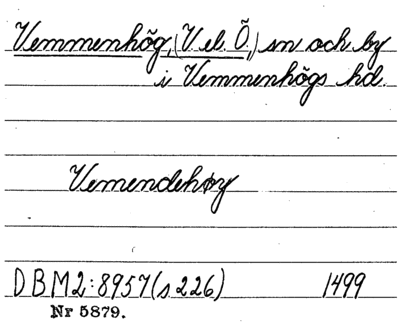 Vemmenhög, (V el. Ö.,) sn och by
i Vemmenhögs hd.
Vemendehøy
DBM2:8957(s 226) 1499
Nr 5879.